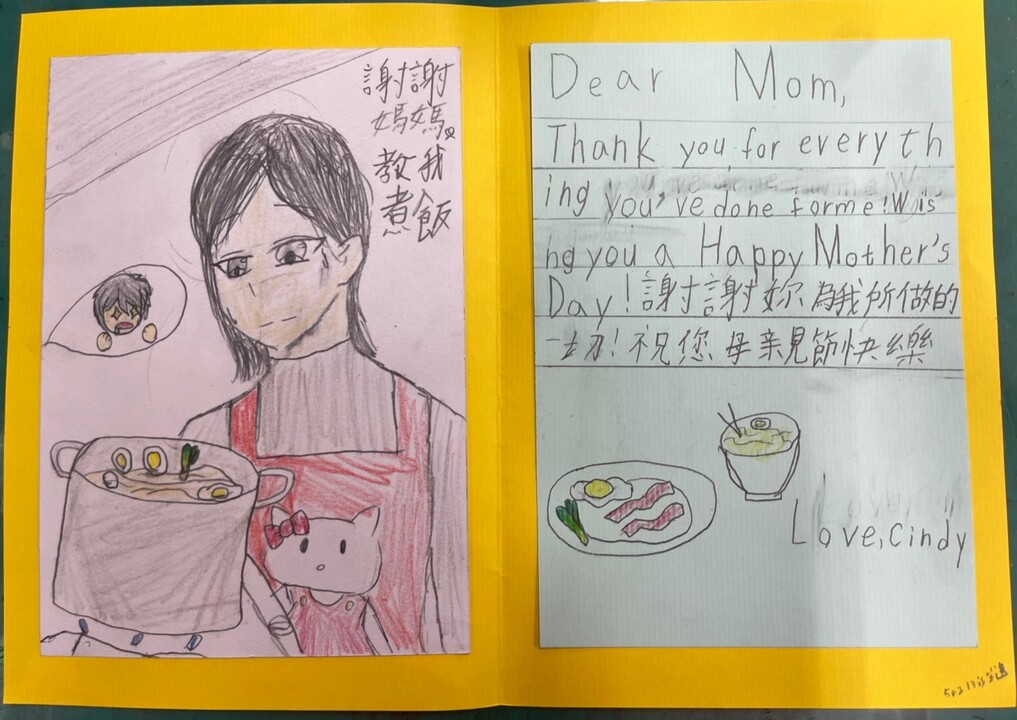 謝謝
媽媽
教我
煮飯
Dear Mom,
Thank you for every th
ing you've done for me! Wis
ng you a Happy Mother's
Day! 謝謝妳為我所做的
一切! 祝您母親節快樂
Love, Cindy